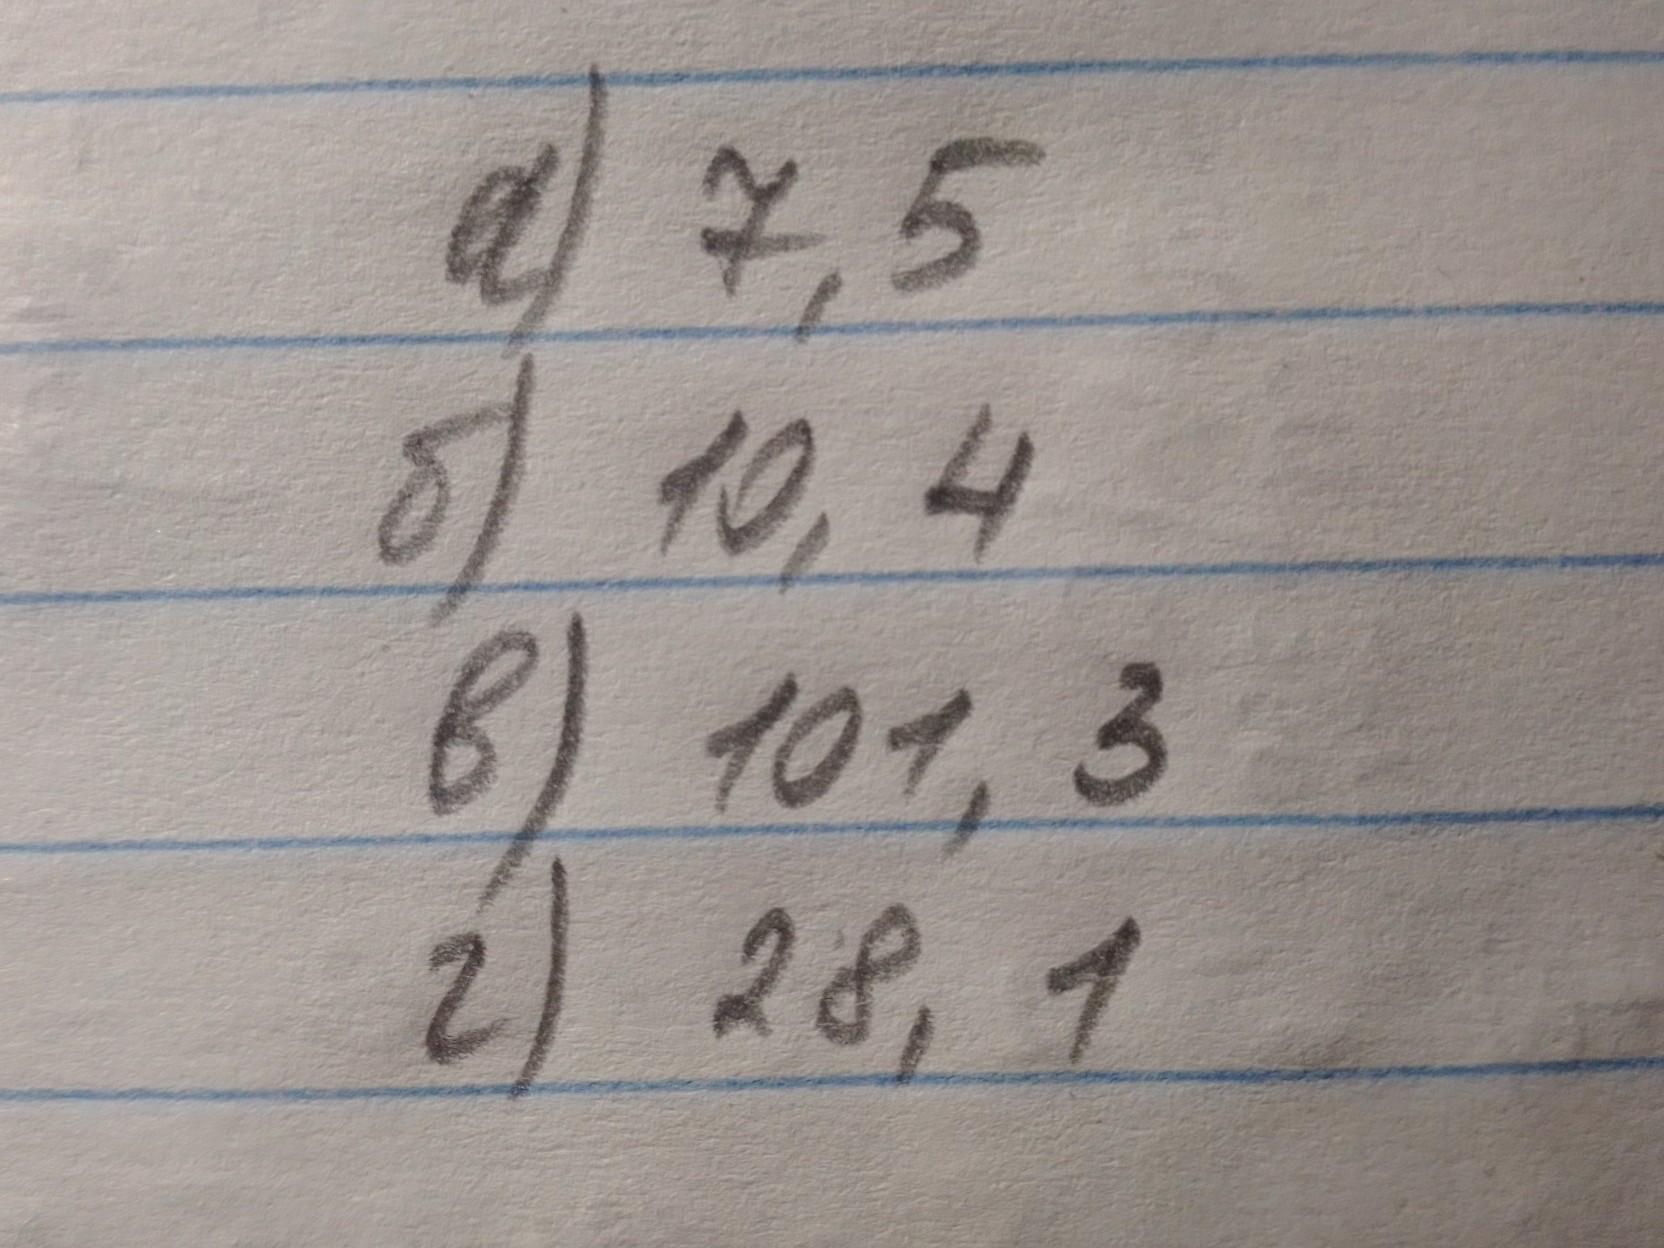 а) 7,5
б) 10, 4
в) 101, 3
г) 28, 1